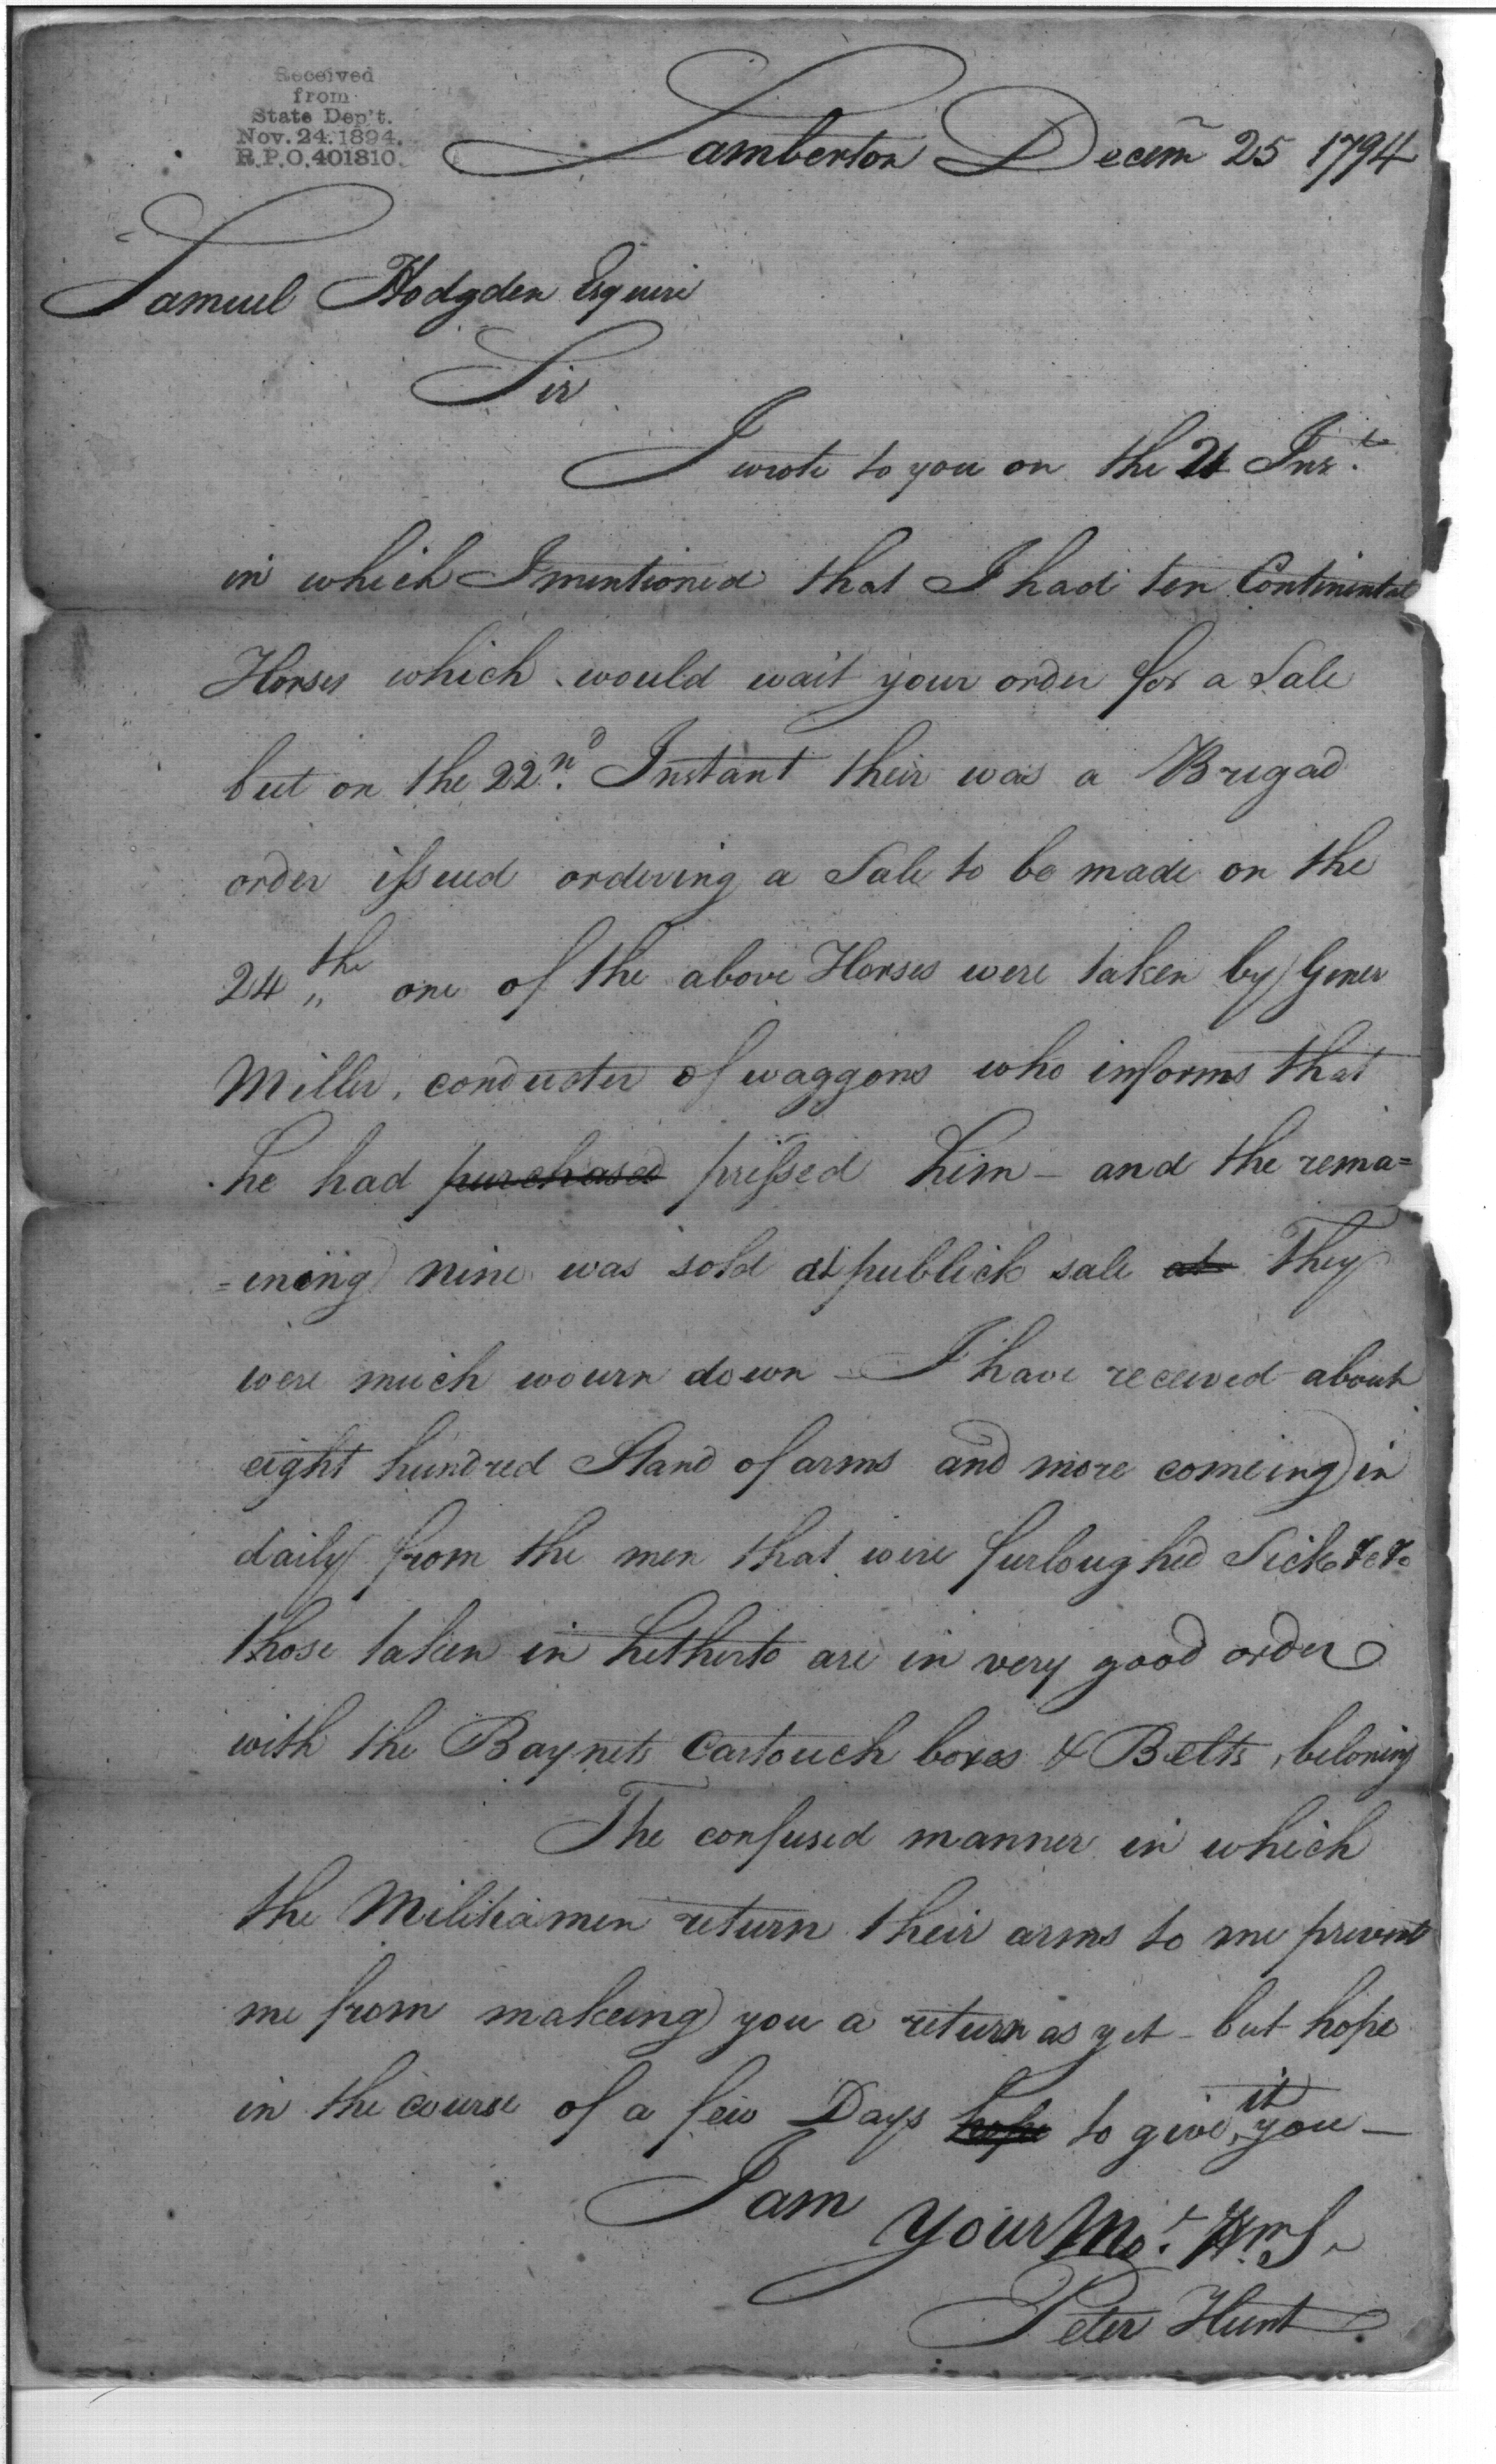 Received
from
State Dep't.
Nov. 24. 1894.
R.P.O. 401810.
Lamberton Decem 25 1794
Samuel Hodgden Esquire
Sir
I wrote to you on the 21 Inst.
in which I mentioned that I had ten Continental
Horses which would wait your order for a Sale
but on the 22nd. Instant their was a Brigad
order issued ordering a Sale to be made on the
24th one of the above Horses were taken by
Miller, conducter of waggons who informs that
he had purchased pressed him - and the rema=
=ineing nine was sold at publick sale at They
were much wourn down - I have received about
eight hundred Stand of arms and more comeing in
daily from the men that were furloughed Sick &c &c
those taken in hetherto are in very good order
with the Baynets Cartouch boxes & Belts, beloning
The confused manner in which
the Militiamen return their arms to me prevent
me from makeing you a return as yet - but hope
in the course of a few Days hope to give it you -
I am
your Mot. Hm S
Peter Hunt